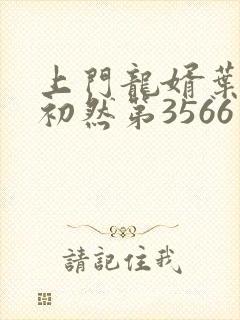 上門龍婿葉
初然第3566
請記住我